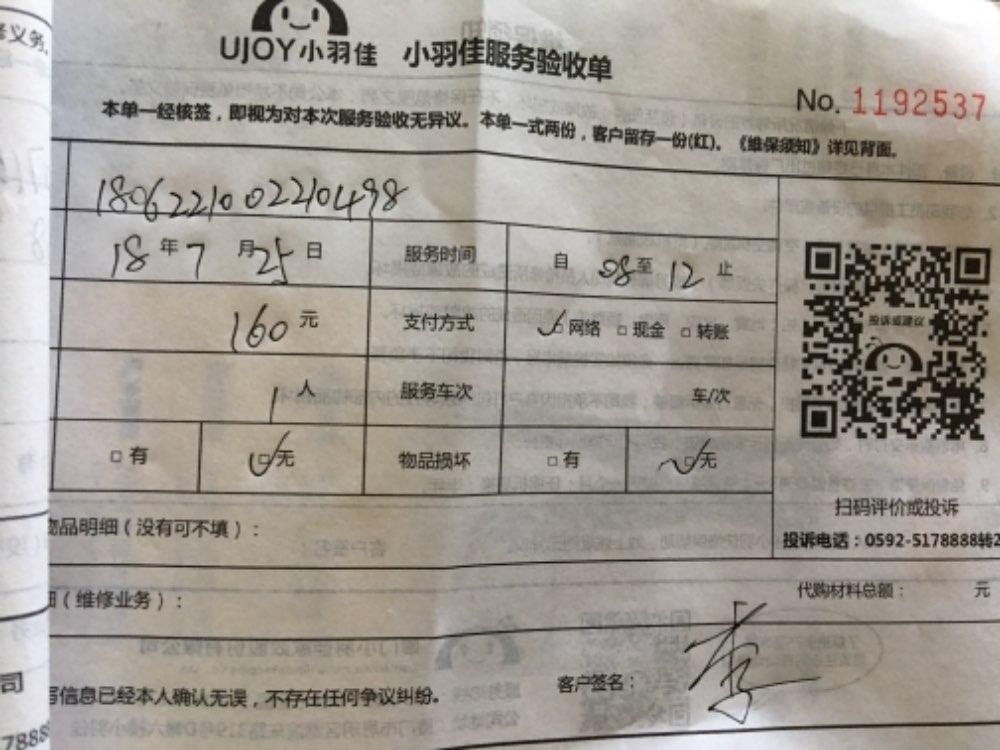 UJOY小羽佳 小羽佳服务验收单
No. 1192537
本单一经核签，即视为对本次服务验收无异议。本单一式两份，客户留存一份(红)。《维保须知》详见背面。
1806221002210498
18年7月25日 服务时间 自 08至12 止
160元 支付方式 ✓□网络 □现金 □转账
1人 服务车次 车/次
□有 ✓□无 物品损坏 □有 ✓□无
投诉或建议
扫码评价或投诉
投诉电话：0592-5178888转2
物品明细（没有可不填）：
（维修业务）： 代购材料总额： 元
写信息已经本人确认无误，不存在任何争议纠纷。 客户签名： 李